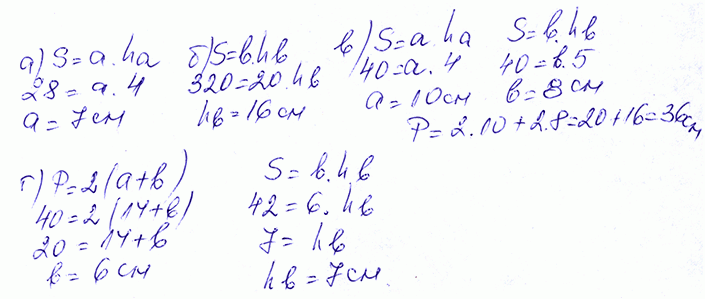 а) S=a.ha
28=a.4
a=7см
б) S=b.hb
320=20.hb
hb=16см
в) S=a.ha
40=a.4
a=10см
S=b.hb
40=b.5
b=8см
P=2.10+2.8=20+16=36см
г) P=2(a+b)
40=2(14+b)
20=14+b
b=6см
S=b.hb
42=6.hb
7=hb
hb=7см.